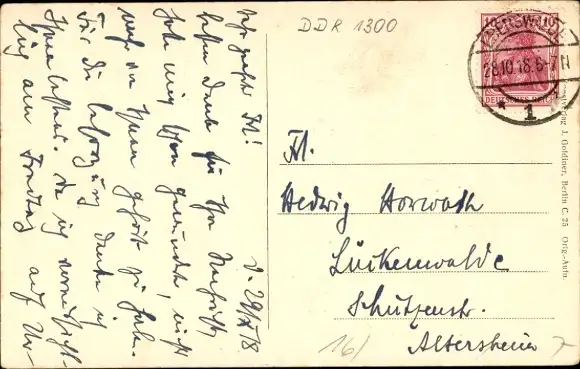 DDR 1300
EBERSWALDE
28.10.18.6-7N
* 1
10 10
DEUTSCHES REICH
Verlag J. Goldiner, Berlin C. 25 Orig.-Aufn.
Frl.
Hedwig Horwath
Luckenwalde
Schützenstr.
Altersheim
16/ 7
d. 29/X 18
Sehr geehrtes Frl!
besten Dank für Ihre Nachricht
habe mich schon gewundert, nicht
mehr von Ihnen gehört zu haben.
Für die Besorgung danke ich
Ihnen bestens. Da ich
am Freitag auf